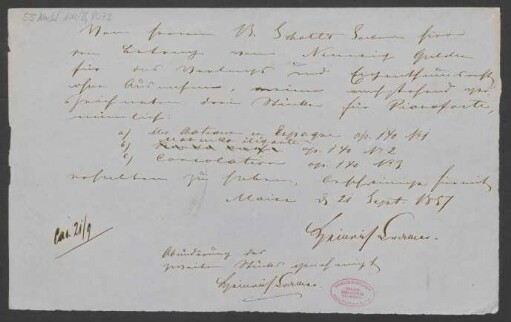 55 Nachl 100/B,
Von Herren B. Schott's Söhne hier
den Betrag von Neunzig Gulden
für das Verlags und Eigenthumsrecht
ohne Ausnahme, meiner nachstehend
zeichneten drei Stücke für Pianoforte,
nämlich:
a) en Espagne op. 140 No 1
b) Mazurka élégante op. 140 No 2
c) Consolation op. 140 No 3
erhalten zu haben, bescheinige hiermit
Mainz d 21 Sept 1857
Heinrich Cramer.
21/9
Abänderung des
zweiten Stücks genehmigt
Heinrich Cramer.